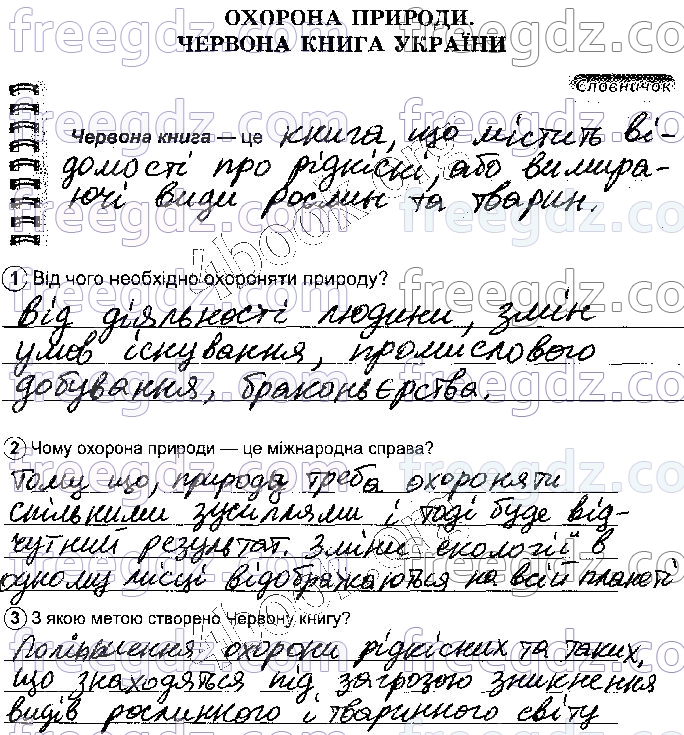 ОХОРОНА ПРИРОДИ.
ЧЕРВОНА КНИГА УКРАЇНИ
Словничок
Червона книга — це книга, що містить ві-
домості про рідкісні, або вимира-
ючі види рослин та тварин.
1 Від чого необхідно охороняти природу?
Від діяльності людини, змін
умов існування, промислового
добування, браконьєрства.
2 Чому охорона природи — це міжнародна справа?
Тому що, природу треба охороняти
спільними зусиллями і тоді буде від-
чутний результат. Зміни екології в
одному місці відображаються на всій планеті
3 З якою метою створено Червону книгу?
Поліпшення охорони рідкісних та таких,
що знаходяться під загрозою зникнення
видів рослинного і тваринного світу
freegdz.com
4book.org